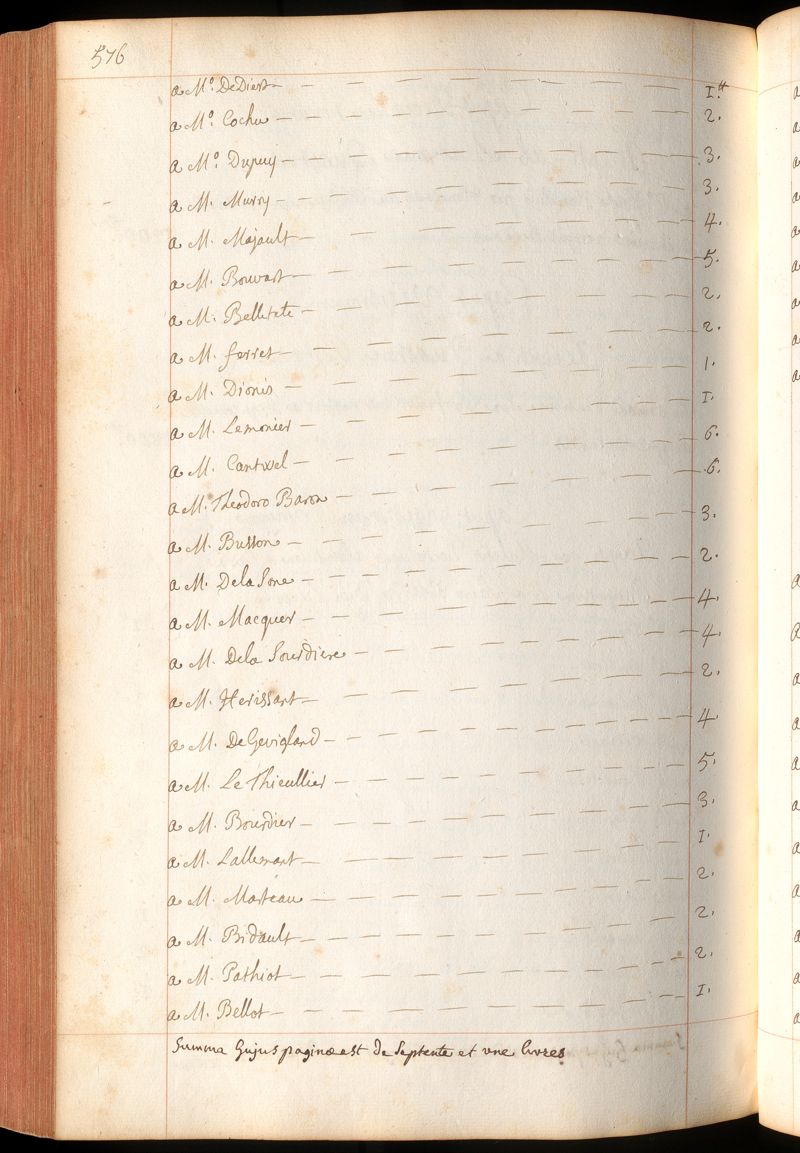 576
a M.º De Diest — 1.ᵗᵗ
a M.º Cochu — 2.
a M.º Dupuy — 3.
a M. Murry — 3.
a M. Majault — 4.
a M. Bouvart — 5.
a M. Belletete — 2.
a M. ferret — 2.
a M. Dionis — 1.
a M. Lemonier — 1.
a M. Cantwel — 6.
a M. Theodoro Baron — 6.
a M. Busson — 3.
a M. De la Sone — 2.
a M. Macquer — 4.
a M. De la Sourdiere — 4.
a M. Herissant — 2.
a M. De Gevigland — 4.
a M. Le Thieullier — 5.
a M. Bourdier — 3.
a M. Lallemant — 1.
a M. Marteau — 2.
a M. Bidault — 2.
a M. Pathiot — 2.
a M. Bellot — 1.
Summa hujus paginæ est de Septente et une livres